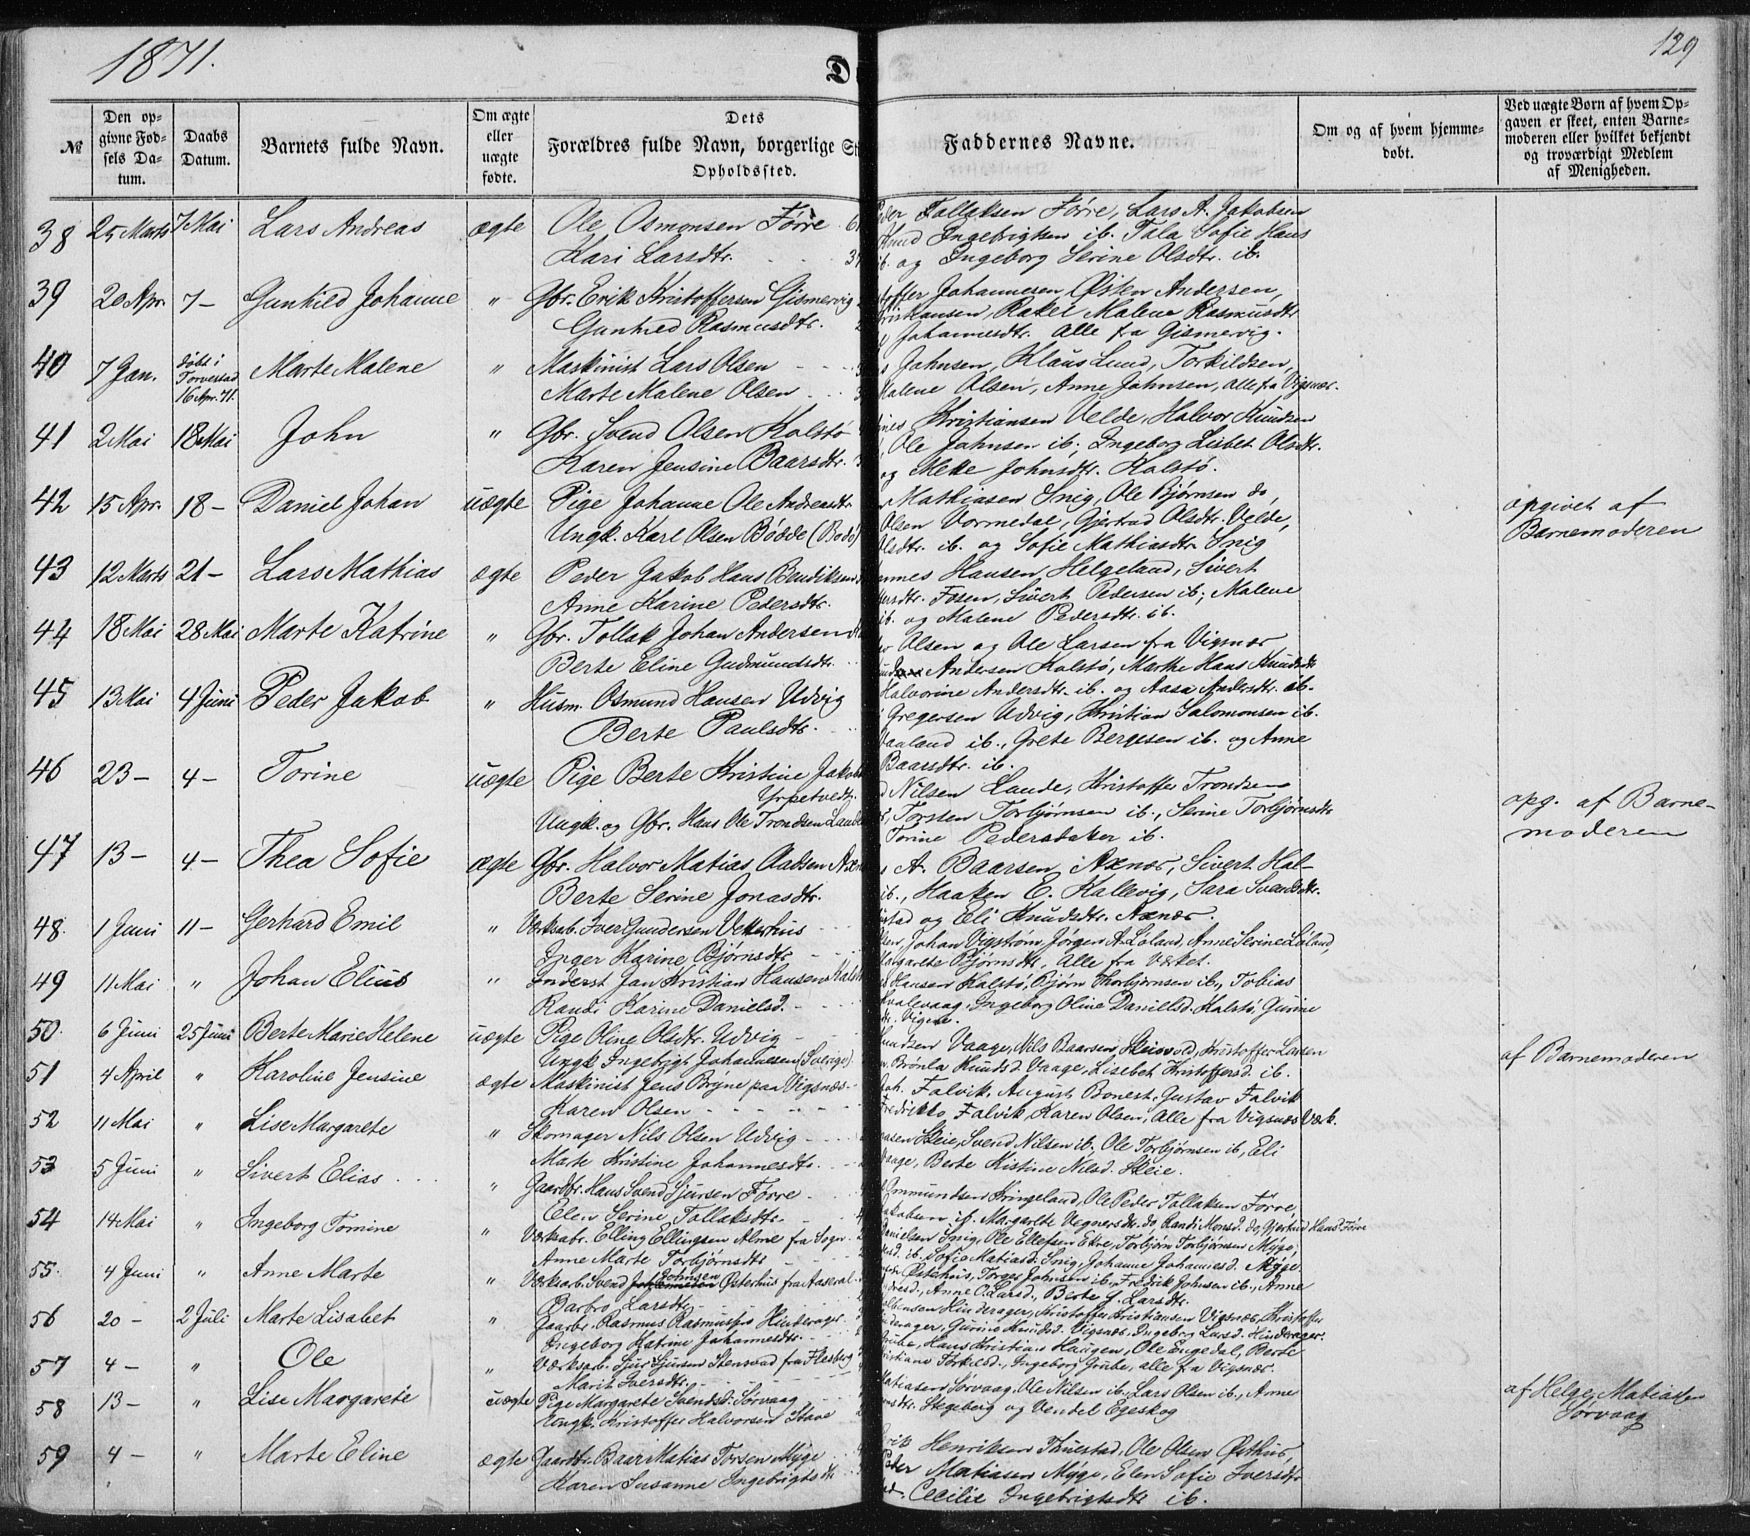 1871.
D
129
№
Den op-
givne Fød-
sels Da-
tum.
Daabs
Datum.
Barnets fulde Navn.
Om ægte
eller
uægte
fødte.
Dets
Forældres fulde Navn, borgerlige St
Opholdssted.
Faddernes Navne.
Om og af hvem hjemme-
døbt.
Ved uægte Børn af hvem Op-
gaven er skeet, enten Barne-
moderen eller hvilket bekjendt
og troværdigt Medlem
af Menigheden.
38 25 Marts 7 Mai Lars Andreas ægte Ole Osmonsen Førre
Kari Larsdtr.
Tollaksen Førre, Lars A. Jakobsen
Ingebrigtsen ib. Tala Sofie Hans
ib. og Ingeborg Serine Olsdtr. ib.
39 20 Apr. 7 - Gunhild Johanne " Gbr. Erik Kristoffersen Gismervig
Gunhild Rasmusdtr.
Johannesen, Østen Andersen,
Rakel Malene Rasmusdtr
Johannesdtr. Alle fra Gismervig.
40 7 Jan. døbt i
Torvestad
16 Apr. 71. Marte Malene " Maskinist Lars Olsen
Marte Malene Olsen
Johnsen, Klaus Lund, Torkildsen,
Malene Olsen, Anne Johnsen, alle fa Vigsnæs.
41 2 Mai 18 Mai John " Gbr. Svend Olsen Kalstø
Karen Jensine Baarsdtr.
Kristiansen Velde, Halvor Knudsen
Ole Johnsen ib., Ingeborg Lisbet Olsdtr.
og Mette Johnsdtr. Kalstø.
42 15 Apr. 18 - Daniel Johan uægte Pige Johanne Ole Andreasdtr
Ungk. Karl Olsen Bødde (Bodø)
Mathiasen Snig, Ole Bjørnsen do,
Olsen Vormedal, Gjertrud Olsdtr. Velde,
Olsdtr. ib. og Sofie Mathiasdtr. Snig
opgivet af
Barnemoderen
43 12 Marts 21 - Lars Mathias ægte Peder Jakob Hans Bendiksen
Anne Karine Pedersdtr.
Hansen Helgeland, Sivert
Fosen, Sivert Pedersen ib., Malene
ib. og Malene Pedersdtr. ib.
44 18 Mai 28 Mai Marte Katrine " Gbr. Tollak Johan Andersen
Berte Eline Gudmundsdtr.
Olsen og Ole Larsen fra Vigsnæs
Andersen Kalstø, Marthe Hans Knudsdtr
Halvorine Andersdtr. ib. og Aasa Andersdtr. ib.
45 13 Mai 4 Juni Peder Jakob " Husm. Osmund Hansen Udvig
Berte Paulsdtr.
Gregersen Udvig, Kristian Salomonsen ib.
ib., Grete Bergesen ib. og Anne
Baarsdtr. ib.
46 23 - 4 - Torine uægte Pige Berte Kristine Jakobs
Ungk. og Gbr. Hans Ole Trondsen Laude
Nilsen Laude, Kristoffer Trondsen
Torsten Torbjørnsen ib., Serine Torbjørnsdtr
Torine Pedersdatter ib.
opg. af Barne-
moderen
47 13 - 4 - Thea Sofie ægte Gbr. Halvor Matias Aadsen
Berte Serine Jonasdtr.
A. Baarsen Axnæs, Sivert Hal-
ib., Haaken E. Kallevig, Sara Svendsdtr.
og Eli Knudsdtr. Axnæs.
48. 1 Juni 11 - Gerhard Emil " Værksab. Iver Gundersen Vetterhus
Inger Karine Bjørnsdtr
Johan Vigstrøm, Jørgen A. Løland, Anne Serine Løland,
Margarete Bjørnsdtr, Alle fra Værket.
49 11 Mai " Johan Elius " Inderst Jan Kristian Hansen Kalstø
Randi Karine Danielsd.
Hansen Kalstø, Bjørn Thorbjørnsen ib., Tobias
Ingeborg Oline Danielsd. Kalstø, Gurine
50. 6 Juni 25 Juni Berte Marie Helene uægte Pige Oline Olsdtr. Udvig
Ungk Ingebrigt Johannesen (Sverige)
Vaage, Nils Baarsen, Kristoffer Larsen
Knudsd Vaage, Lisebet Kristoffersd. ib.
af Barnemoderen
51 4 April " Karoline Jensine ægte Maskinist Jens Bryne paa Vigsnæs
Karen Olsen
Falvik, August Bonest, Gustav Falvik
Fredrikke Falvik, Karen Olsen, Alle fra Vigsnæs Værk.
52 11 Mai " Lise Margarete " Skomager Nils Olsen Udvig
Marte Kristine Johannesdtr.
Skeie, Svend Nilsen ib., Ole Torbjørnsen ib, Eli
Vaage, Berte Kistine Nilsd. Skeie.
53 5 Juni " Sivert Elias " Gaardbr. Hans Svend Sjursen Førre
Elen Serine Tollaksdtr.
Ommundsen Kringeland, Ole Peder Tollaksen Førre,
ib. Margarete Vegnersdtr. do, Randi Monsd. do, Gjertrud Hansd Førre
54 14 Mai " Ingeborg Tomine " Værksabr. Elling Ellingsen Alme fra Sogn
Anne Marte Torbjørnsdtr
Danielsen Snig, Ole Ellefsen Ekre, Torbjørn Torbjørnsen Myge,
ib. Sofie Matiasd. Snig, Johanne Johannesd. Myge
55. 4 Juni " Anne Marte " Værksarb. Svend Johnsen Østerhus fra Aaseral
Barbro Larsdtr
Østehus, Torger Johnsen ib., Fredrik Johnsen ib., Anne
Anne O. Larsd., Berte J. Larsdtr.
56 20 - 2 Juli Marte Lisabet " Gaarbr. Rasmus Rasmussen Hinderager
Ingeborg Katrine Johannesdtr.
Hinderager, Kristoffer Kristiansen Vigsnæs, Kristoffer
Gurine Knudsd. Vigsnæs, Ingeborg Larsd. Hinderager.
57 4 - " Ole " Værksab. Sjur Sjursen Stensrud fra Flesberg
Marit Iversdtr.
Grube, Hans Kristian Haugen, Ole Engedal, Berte
Torkilsd., Ingeborg Grube, alle fa Vigsnæs.
58 13 - " Lise Margarete uægte Pige Margarete Svendsd. Sørvaag
Ungk. Kristoffer Halvorsen Stave
Matiasen Sørvaag, Ole Nilsen ib., Lars Olsen ib., Anne
Stegeberg og Vendel Egeskog
af Helge Matiasen
Sørvaag
59 4 - " Marte Eline ægte Gaardbr. Baar Matias Torsen Myge
Karen Susanne Ingebrigtsdtr
Henriksen Thuestad, Ole Olsen Østhus,
Peder Matiasen Myge, Elen Sofie Iversdtr
Cecilie Ingebrigtsdtr ib.